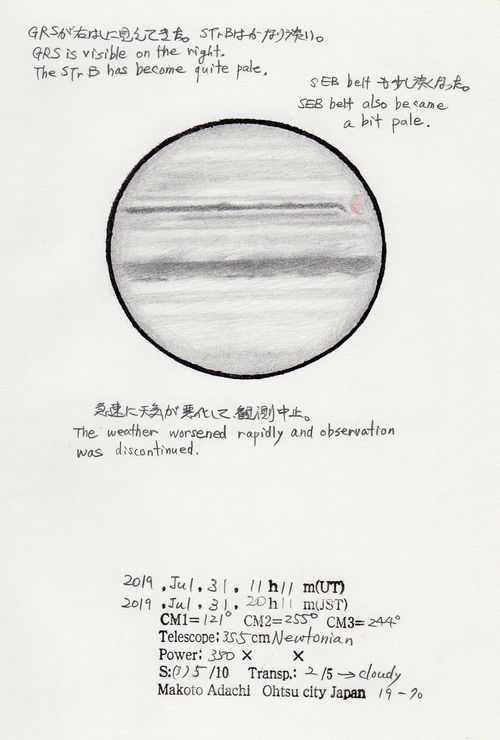 GRSが右はしに見えてきた。STrBはかなり淡い。
GRS is visible on the right.
The STrB has become quite pale.
SEB belt も少し淡くなった。
SEB belt also became
a bit pale.
急速に天気が悪化して観測中止。
The weather worsened rapidly and observation
was discontinued.
2019, Jul, 31, 11h11 m(UT)
2019, Jul, 31, 20h11 m(JST)
CM1=121° CM2=255° CM3=244°
Telescope: 355cm Newtonian
Power: 380 × ×
S: 5/10 Transp.: 2/5 → cloudy
Makoto Adachi Ohtsu city Japan 19-70